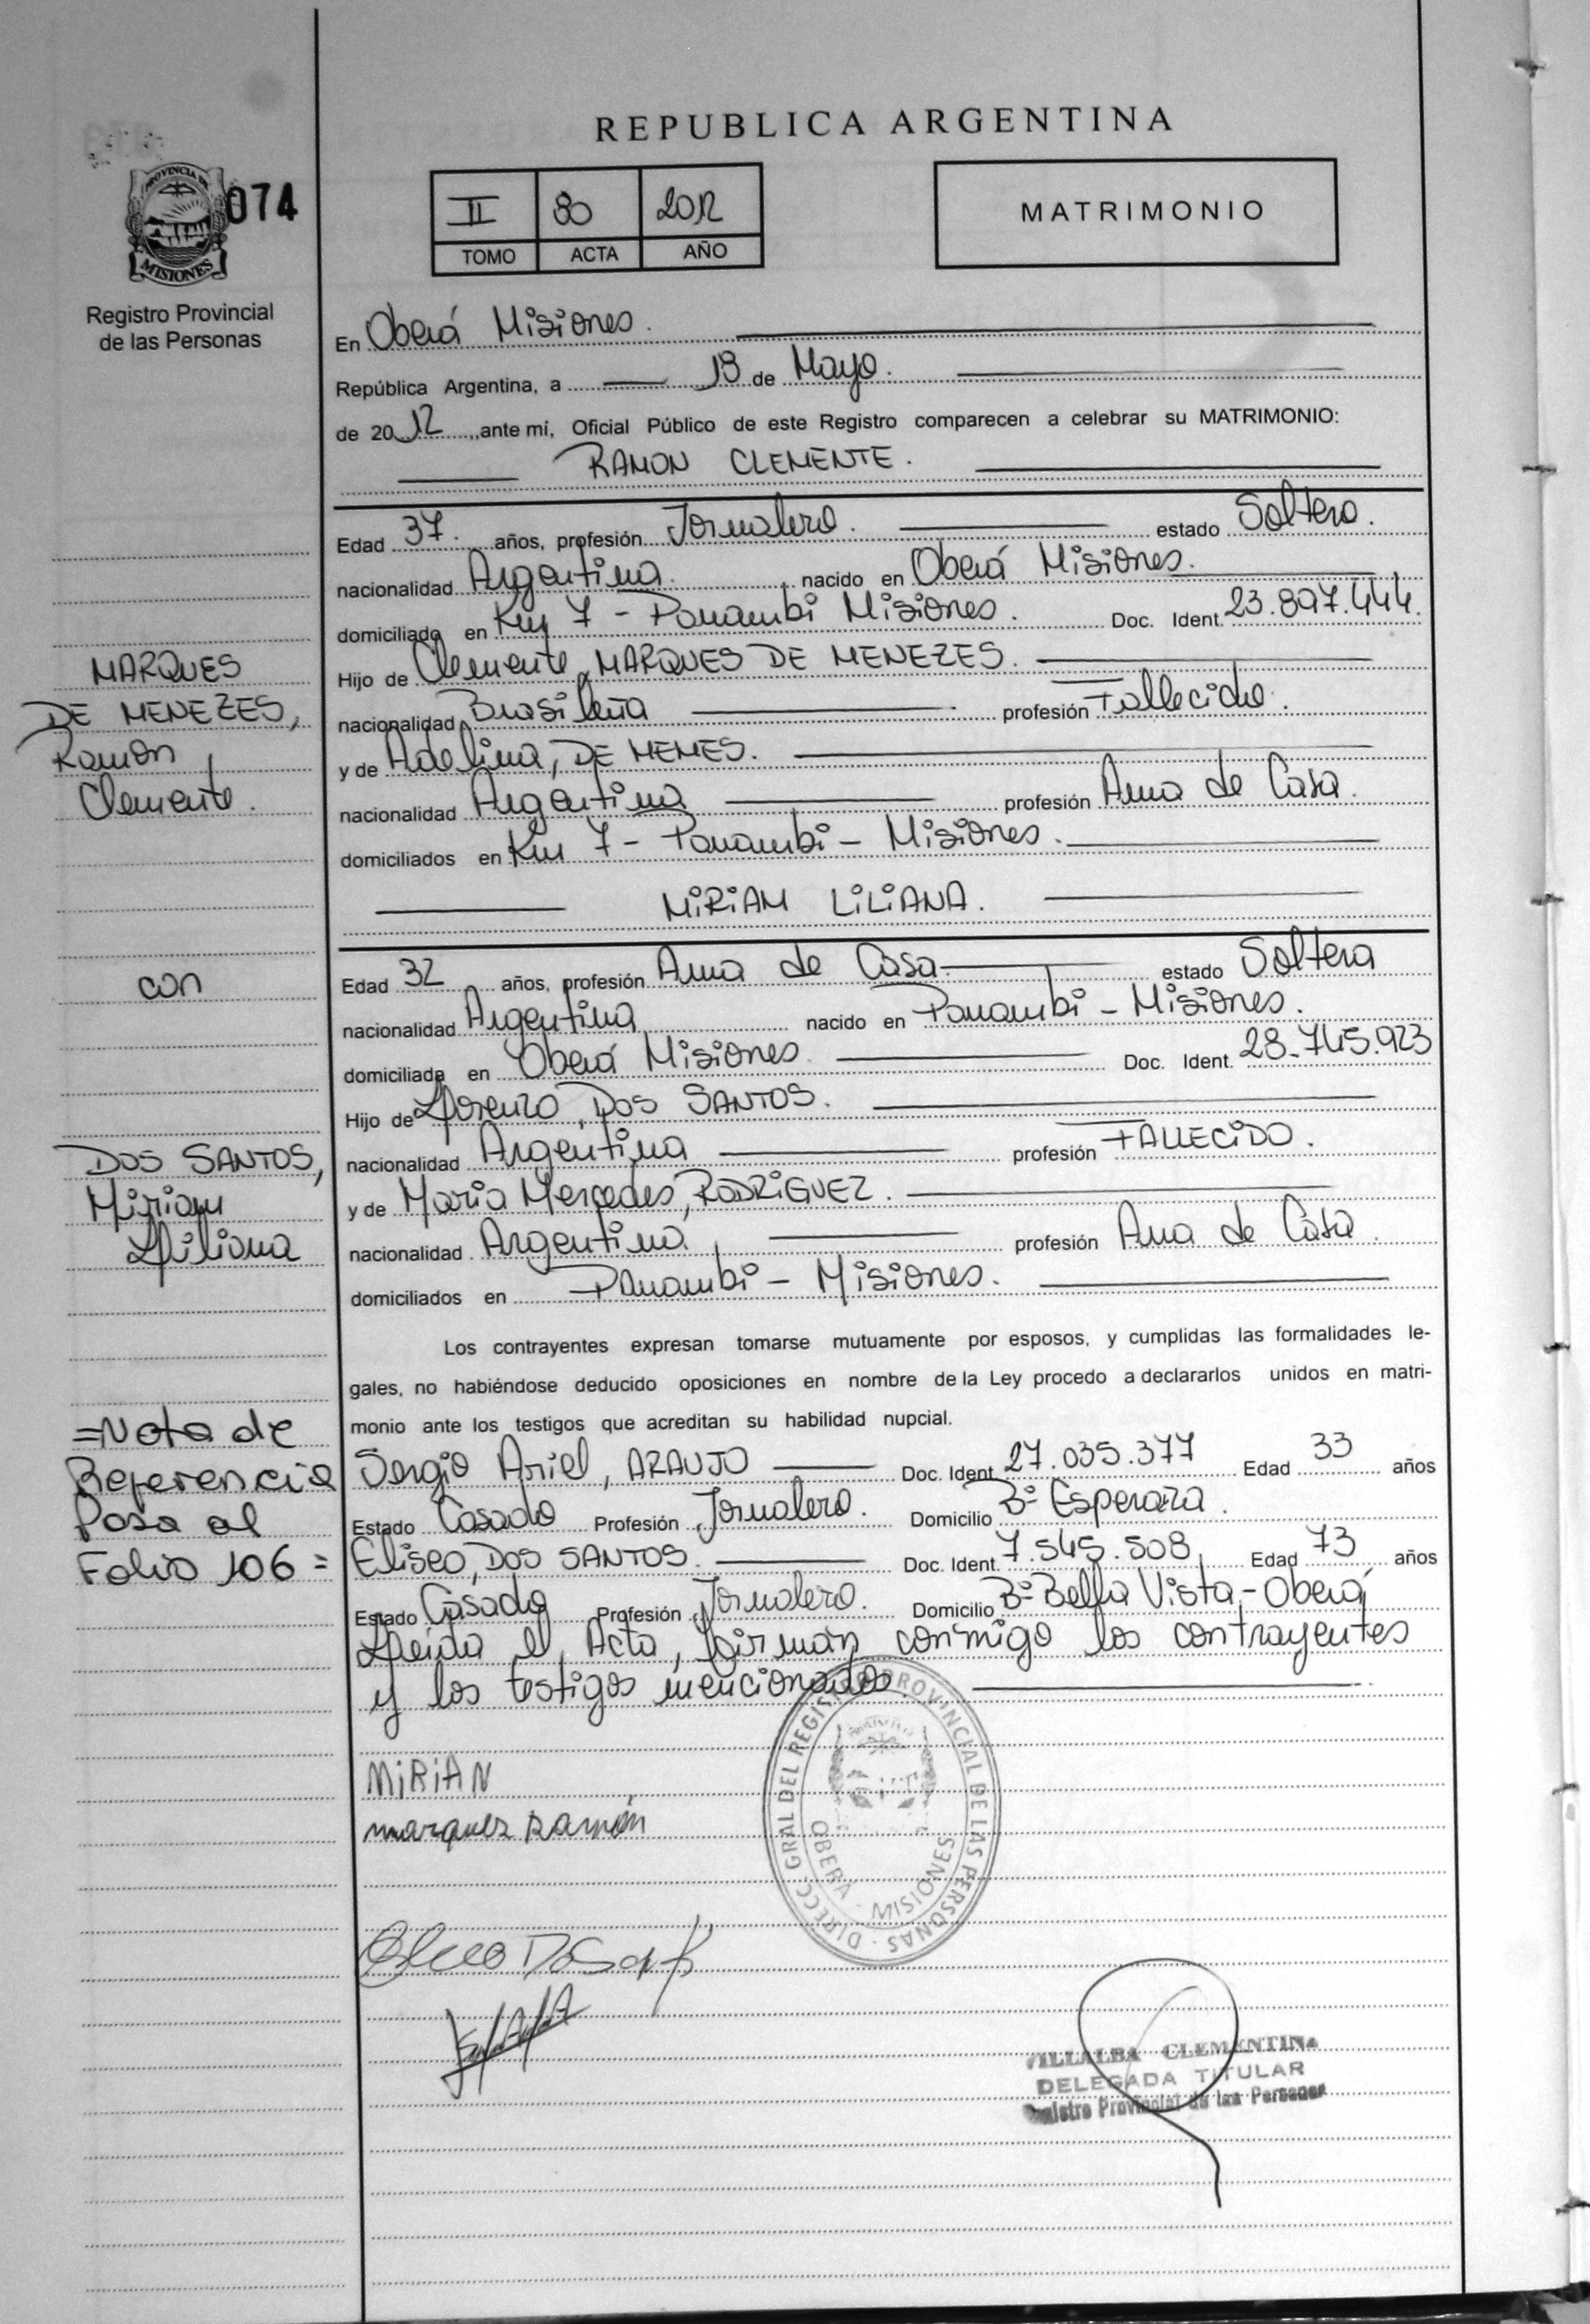 REPUBLICA ARGENTINA
PROVINCIA DE
MISIONES
074
Registro Provincial
de las Personas
II 80 2012
TOMO ACTA AÑO
MATRIMONIO
En Oberá Misiones.
República Argentina, a 18 de Mayo.
de 2012, ante mí, Oficial Público de este Registro comparecen a celebrar su MATRIMONIO:
RAMON CLEMENTE.
Edad 37. años, profesión Jornalero. estado Soltero.
nacionalidad Argentina. nacido en Oberá Misiones.
domiciliado en Km 7 - Panambi Misiones. Doc. Ident. 23.897.444.
Hijo de Clemente, MARQUES DE MENEZES.
nacionalidad Brasileña profesión Fallecido.
y de Adelina, DE MEMES.
nacionalidad Argentina profesión Ama de Casa.
domiciliados en Km 7 - Panambi - Misiones.
MIRIAM LILIANA.
Edad 32 años, profesión Ama de Casa estado Soltera
nacionalidad Argentina nacido en Panambi - Misiones.
domiciliada en Oberá Misiones. Doc. Ident. 28.745.923
Hijo de Lorenzo, DOS SANTOS.
nacionalidad Argentina profesión FALLECIDO.
y de Maria Mercedes, RODRIGUEZ.
nacionalidad Argentina profesión Ama de Casa.
domiciliados en Panambi - Misiones.
MARQUES
DE MENEZES,
Ramon
Clemente.
con
DOS SANTOS,
Miriam
Liliana
Los contrayentes expresan tomarse mutuamente por esposos, y cumplidas las formalidades le-
gales, no habiéndose deducido oposiciones en nombre de la Ley procedo a declararlos unidos en matri-
monio ante los testigos que acreditan su habilidad nupcial.
Sergio Ariel, ARAUJO Doc. Ident. 27.035.377 Edad 33 años
Estado Casado Profesión Jornalero. Domicilio Bº Esperanza.
Eliseo, DOS SANTOS. Doc. Ident. 7.545.508 Edad 73 años
Estado Casado Profesión Jornalero. Domicilio Bº Bella Vista - Oberá
Leida el Acta, firman conmigo los contrayentes
y los testigos mencionados.
=Nota de
Referencia
Pasa al
Folio 106=
MIRIAN
marquez Ramón
DIRECC. GRAL DEL REGISTRO PROVINCIAL DE LAS PERSONAS
OBERA - MISIONES
VILLALBA CLEMENTINA
DELEGADA TITULAR
Registro Provincial de las Personas